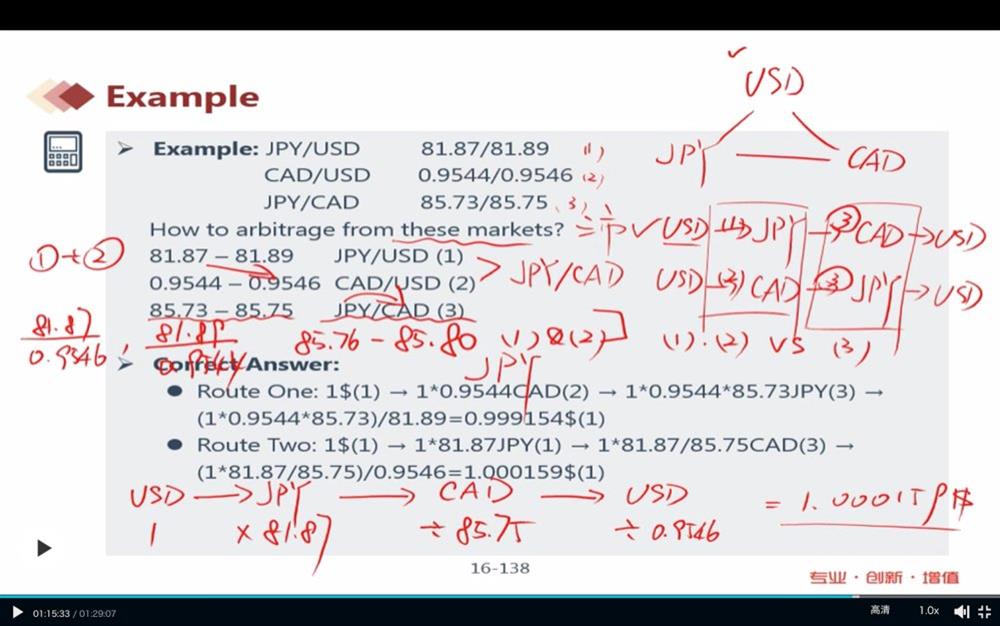 Example
USD
Example: JPY/USD 81.87/81.89 (1)
JPY CAD
CAD/USD 0.9544/0.9546 (2)
JPY/CAD 85.73/85.75 (3)
How to arbitrage from these markets?
USD (1) JPY → ③ CAD → USD
①+②
81.87 – 81.89 JPY/USD (1)
0.9544 – 0.9546 CAD/USD (2)
> JPY/CAD
USD (2) CAD ③ JPY → USD
85.73 – 85.75 JPY/CAD (3)
81.87 / 0.9546, 81.89 / 0.9544
85.76 – 85.80 (1)&(2)
(1).(2) VS (3)
Correct Answer:
JPY
Route One: 1$(1) → 1*0.9544CAD(2) → 1*0.9544*85.73JPY(3) →
(1*0.9544*85.73)/81.89=0.999154$(1)
Route Two: 1$(1) → 1*81.87JPY(1) → 1*81.87/85.75CAD(3) →
(1*81.87/85.75)/0.9546=1.000159$(1)
USD → JPY → CAD → USD
1 × 81.87 ÷ 85.75 ÷ 0.9546
= 1.000159$
16-138
专业·创新·增值
01:15:33 / 01:29:07 高清 1.0x